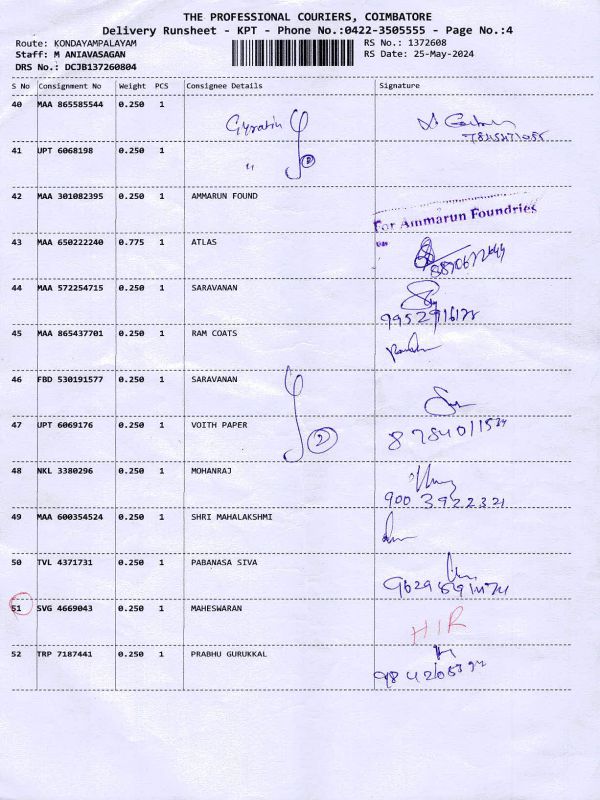 THE PROFESSIONAL COURIERS, COIMBATORE
Delivery Runsheet - KPT - Phone No.:0422-3505555 - Page No.:4
Route: KONDAYAMPALAYAM RS No.: 1372608
Staff: M ANIAVASAGAN RS Date: 25-May-2024
DRS No.: DCJB137260804
S No Consignment No Weight PCS Consignee Details Signature
40 MAA 865585544 0.250 1
41 UPT 6068198 0.250 1
42 MAA 301082395 0.250 1 AMMARUN FOUND
For Ammarun Foundries
43 MAA 650222240 0.775 1 ATLAS
44 MAA 572254715 0.250 1 SARAVANAN
45 MAA 865437701 0.250 1 RAM COATS
46 FBD 530191577 0.250 1 SARAVANAN
47 UPT 6069176 0.250 1 VOITH PAPER
2
48 NKL 3380296 0.250 1 MOHANRAJ
900 3922321
49 MAA 600354524 0.250 1 SHRI MAHALAKSHMI
50 TVL 4371731 0.250 1 PABANASA SIVA
51 SVG 4669043 0.250 1 MAHESWARAN
HIR
52 TRP 7187441 0.250 1 PRABHU GURUKKAL